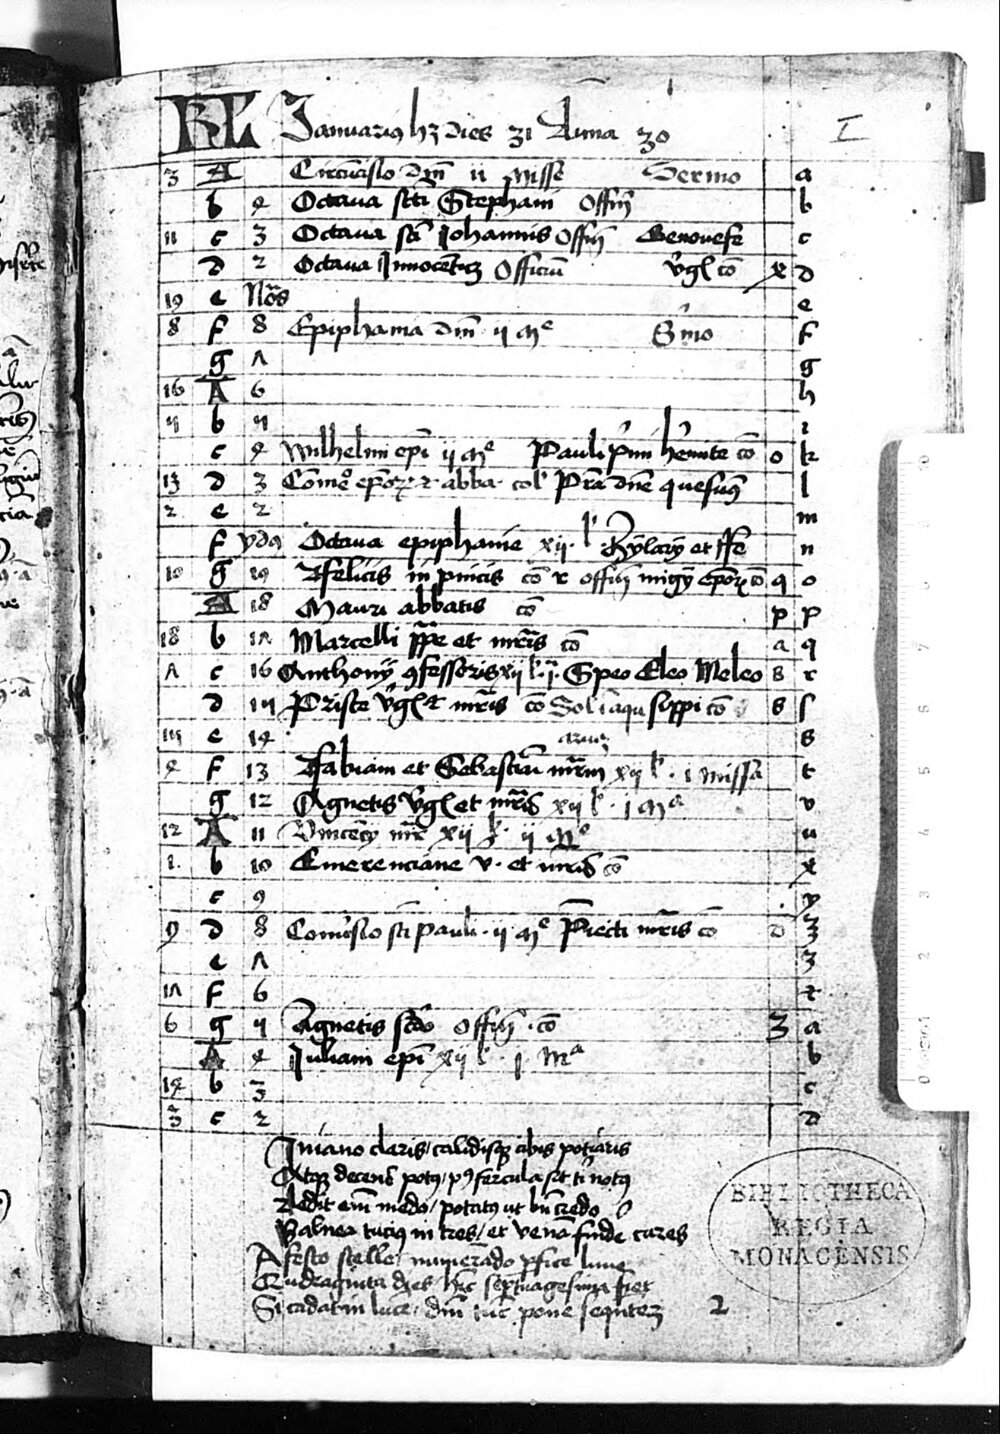 KL Januariꝰ hꝫ dies 31 Luna 30 I
3 A Circūcisio dn̄i ii misse Sermo a
b 4 Octaua scti Stephani Offm̄ b
11 c 3 Octaua sci Johannis Offm̄ Genouefe c
d 2 Octaua Innocentū Officiū v̄gī cō x d
19 e Nōs e
8 f 8 Epiphania dn̄i ii mᵉ S'mo f
g 7 g
16 A 6 h
5 b 5 i
c 4 Wilhelmi epī ii mᵉ Pauli p'mi h'emite cō o k
13 d 3 l
2 e 2 m
f ydꝰ Octaua epiphanie xii l' Hylarij et n
10 g 19 Felicis in pincis cō q o
A 18 Mauri abbatis cō p p
18 b 17 Marcelli pp̄e et mr̄is cō a q
7 c 16 Anthonij ꝯfessoris xii l' i Speo Eleo Meleo 8 r
d 15 Prisce v̄gī et mr̄is cō Sol ī aqu cō s
15 e 14 s
4 f 13 Fabiani et Sebastiani mr̄m xii l' i missa t
g 12 Agnetis v̄gī et mr̄is xii l' i mᵃ v
12 A 11 Vincencij mr̄ xii l' ii mᵉ u
1 b 10 Emerenciane v. et mr̄is cō x
c 9 y
9 d 8 Con'usio sci Pauli ii mᵉ Piecti mr̄is cō z
e 7 3
17 f 6
6 g 5 Agnetis scdo offm̄ cō 3 a
A 4 Juliani epī xii l' i mᵃ b
14 b 3 c
3 c 2 d
In iano claris calidisqꝫ cibis potiaris
Atqꝫ decens potꝰ pꝰ fercula sit ti notꝰ
Ledit em̄ medo potatꝰ ut bn̄ credo
Balnea tuciꝰ intres et venā finde cures
A festo stelle numerādo ꝑfice lune
Quadraginta dies h̄c septuagesima fiet
Si cadat in luce dn̄i tūc pone sequētem
2
BIBLIOTHECA
REGIA
MONACENSIS